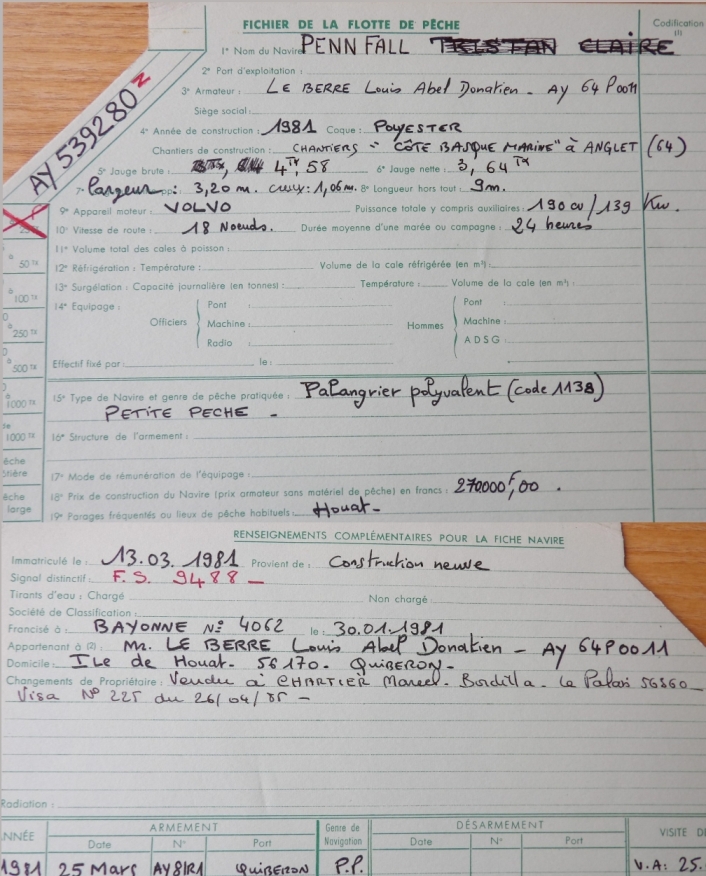 FICHIER DE LA FLOTTE DE PÊCHE
Codification
(1)
1° Nom du Navire PENN FALL TRISTAN CLAIRE
2° Port d'exploitation :
3° Armateur : LE BERRE Louis Abel Donatien - AY 64 P0011
Siège social :
AY 539280 N
4° Année de construction : 1981 Coque : POLYESTER
Chantiers de construction : CHANTIERS "CÔTE BASQUE MARINE" à ANGLET (64)
5° Jauge brute : 4Tx, 58 6° Jauge nette : 3, 64 Tx
7° largeur : 3,20 m. creux : 1,06 m. 8° Longueur hors tout : 9m.
9° Appareil moteur : VOLVO Puissance totale y compris auxiliaires : 190 cv / 139 Kw.
10° Vitesse de route : 18 Noeuds. Durée moyenne d'une marée ou campagne : 24 heures
11° Volume total des cales à poisson :
à 50 TX
12° Réfrigération : Température : Volume de la cale réfrigérée (en m³) :
13° Surgélation : Capacité journalière (en tonnes) : Température : Volume de la cale (en m³) :
à 100 TX
14° Equipage : Officiers Pont Machine : Radio Hommes Pont : Machine : A D S G :
à 250 TX
Effectif fixé par : le :
à 500 TX
15° Type de Navire et genre de pêche pratiquée : Palangrier polyvalent (code 1138)
à 1000 TX
PETITE PECHE -
de 1000 TX
16° Structure de l'armement :
êche
17° Mode de rémunération de l'équipage :
êche
18° Prix de construction du Navire (prix armateur sans matériel de pêche) en francs : 270000F,00 .
large
19° Parages fréquentés ou lieux de pêche habituels : Houat -
RENSEIGNEMENTS COMPLÉMENTAIRES POUR LA FICHE NAVIRE
Immatriculé le : 13.03. 1981 Provient de : Construction neuve
Signal distinctif : F. S. 9488 -
Tirants d'eau : Chargé Non chargé
Société de Classification :
Francisé à : BAYONNE N° 4062 le : 30.01.1981
Appartenant à (2) : Mr. LE BERRE Louis Abel Donatien - AY 64P0011
Domicile : ILE de Houat - 56170 - QUIBERON -
Changements de Propriétaire : Vendu à CHARTIER Marcel - Bordilla - Le Palais 56360 -
Visa N° 225 du 26/04/85 -
Radiation :
NNÉE ARMEMENT Genre de Navigation DÉSARMEMENT VISITE D
Date N° Port Date N° Port
1981 25 Mars AY81R1 QUIBERON P.P. V.A: 25.